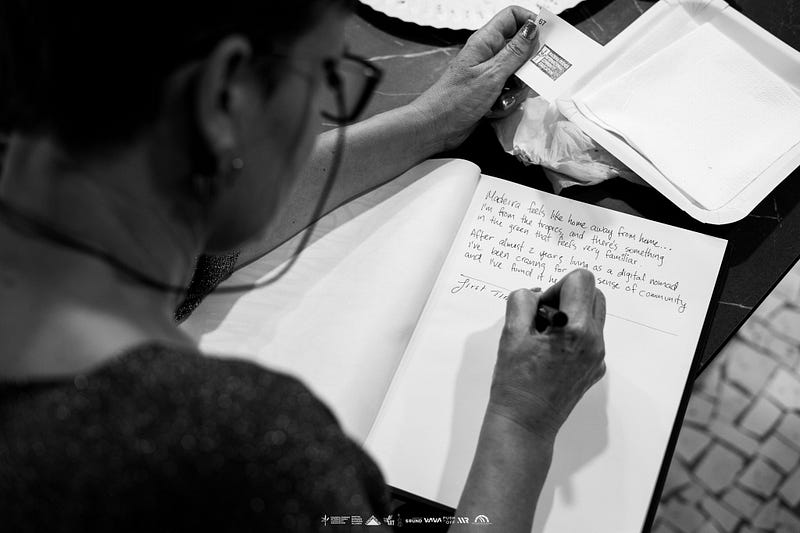 67
Madeira feels like home away from home...
I'm from the tropics, and there's something
in the green that feels very familiar.
After almost 2 years living as a digital nomad
I've been craving for sense of community
and I've found it he
First Ti